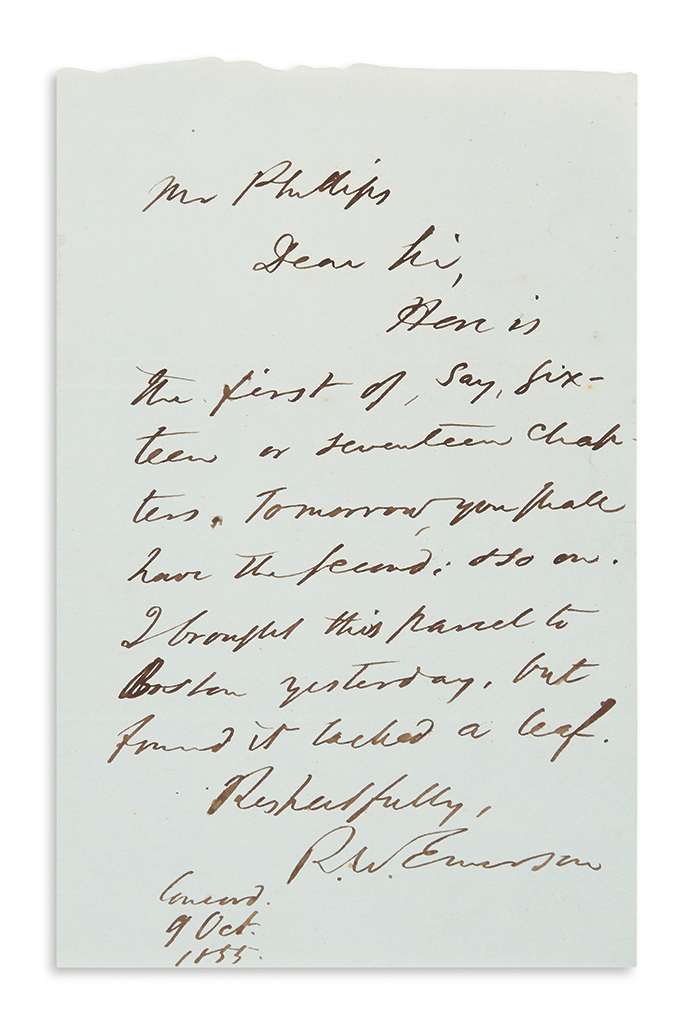 Mr Phillips
Dear Sir,
Here is
the first of, say, six-
teen or seventeen chap-
ters. Tomorrow, you shall
have the second; & so on.
I brought this parcel to
Boston yesterday, but
found it lacked a leaf.
Respectfully,
R. W. Emerson
Concord.
9 Oct.
1855.